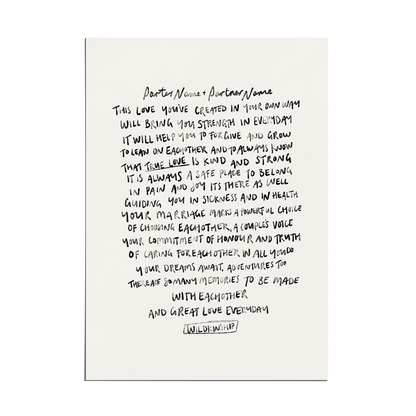 Parter Name + Partner Name
THIS LOVE YOU'VE CREATED IN YOUR OWN WAY
WILL BRING YOU STRENGTH IN EVERYDAY
IT WILL HELP YOU TO FORGIVE AND GROW
TO LEAN ON EACHOTHER AND TO ALWAYS KNOW
THAT TRUE LOVE IS KIND AND STRONG
IT IS ALWAYS A SAFE PLACE TO BELONG
IN PAIN AND JOY ITS THERE AS WELL
GUIDING YOU IN SICKNESS AND IN HEALTH
YOUR MARRIAGE MARKS A POWERFUL CHOICE
OF CHOOSING EACHOTHER, A COUPLES VOICE
YOUR COMMITMENT OF HONOUR AND TRUTH
OF CARING FOR EACHOTHER IN ALL YOU DO
YOUR DREAMS AWAIT, ADVENTURES TOO
THERE ARE SO MANY MEMORIES TO BE MADE
WITH EACHOTHER
AND GREAT LOVE EVERYDAY
WILDKINSHIP